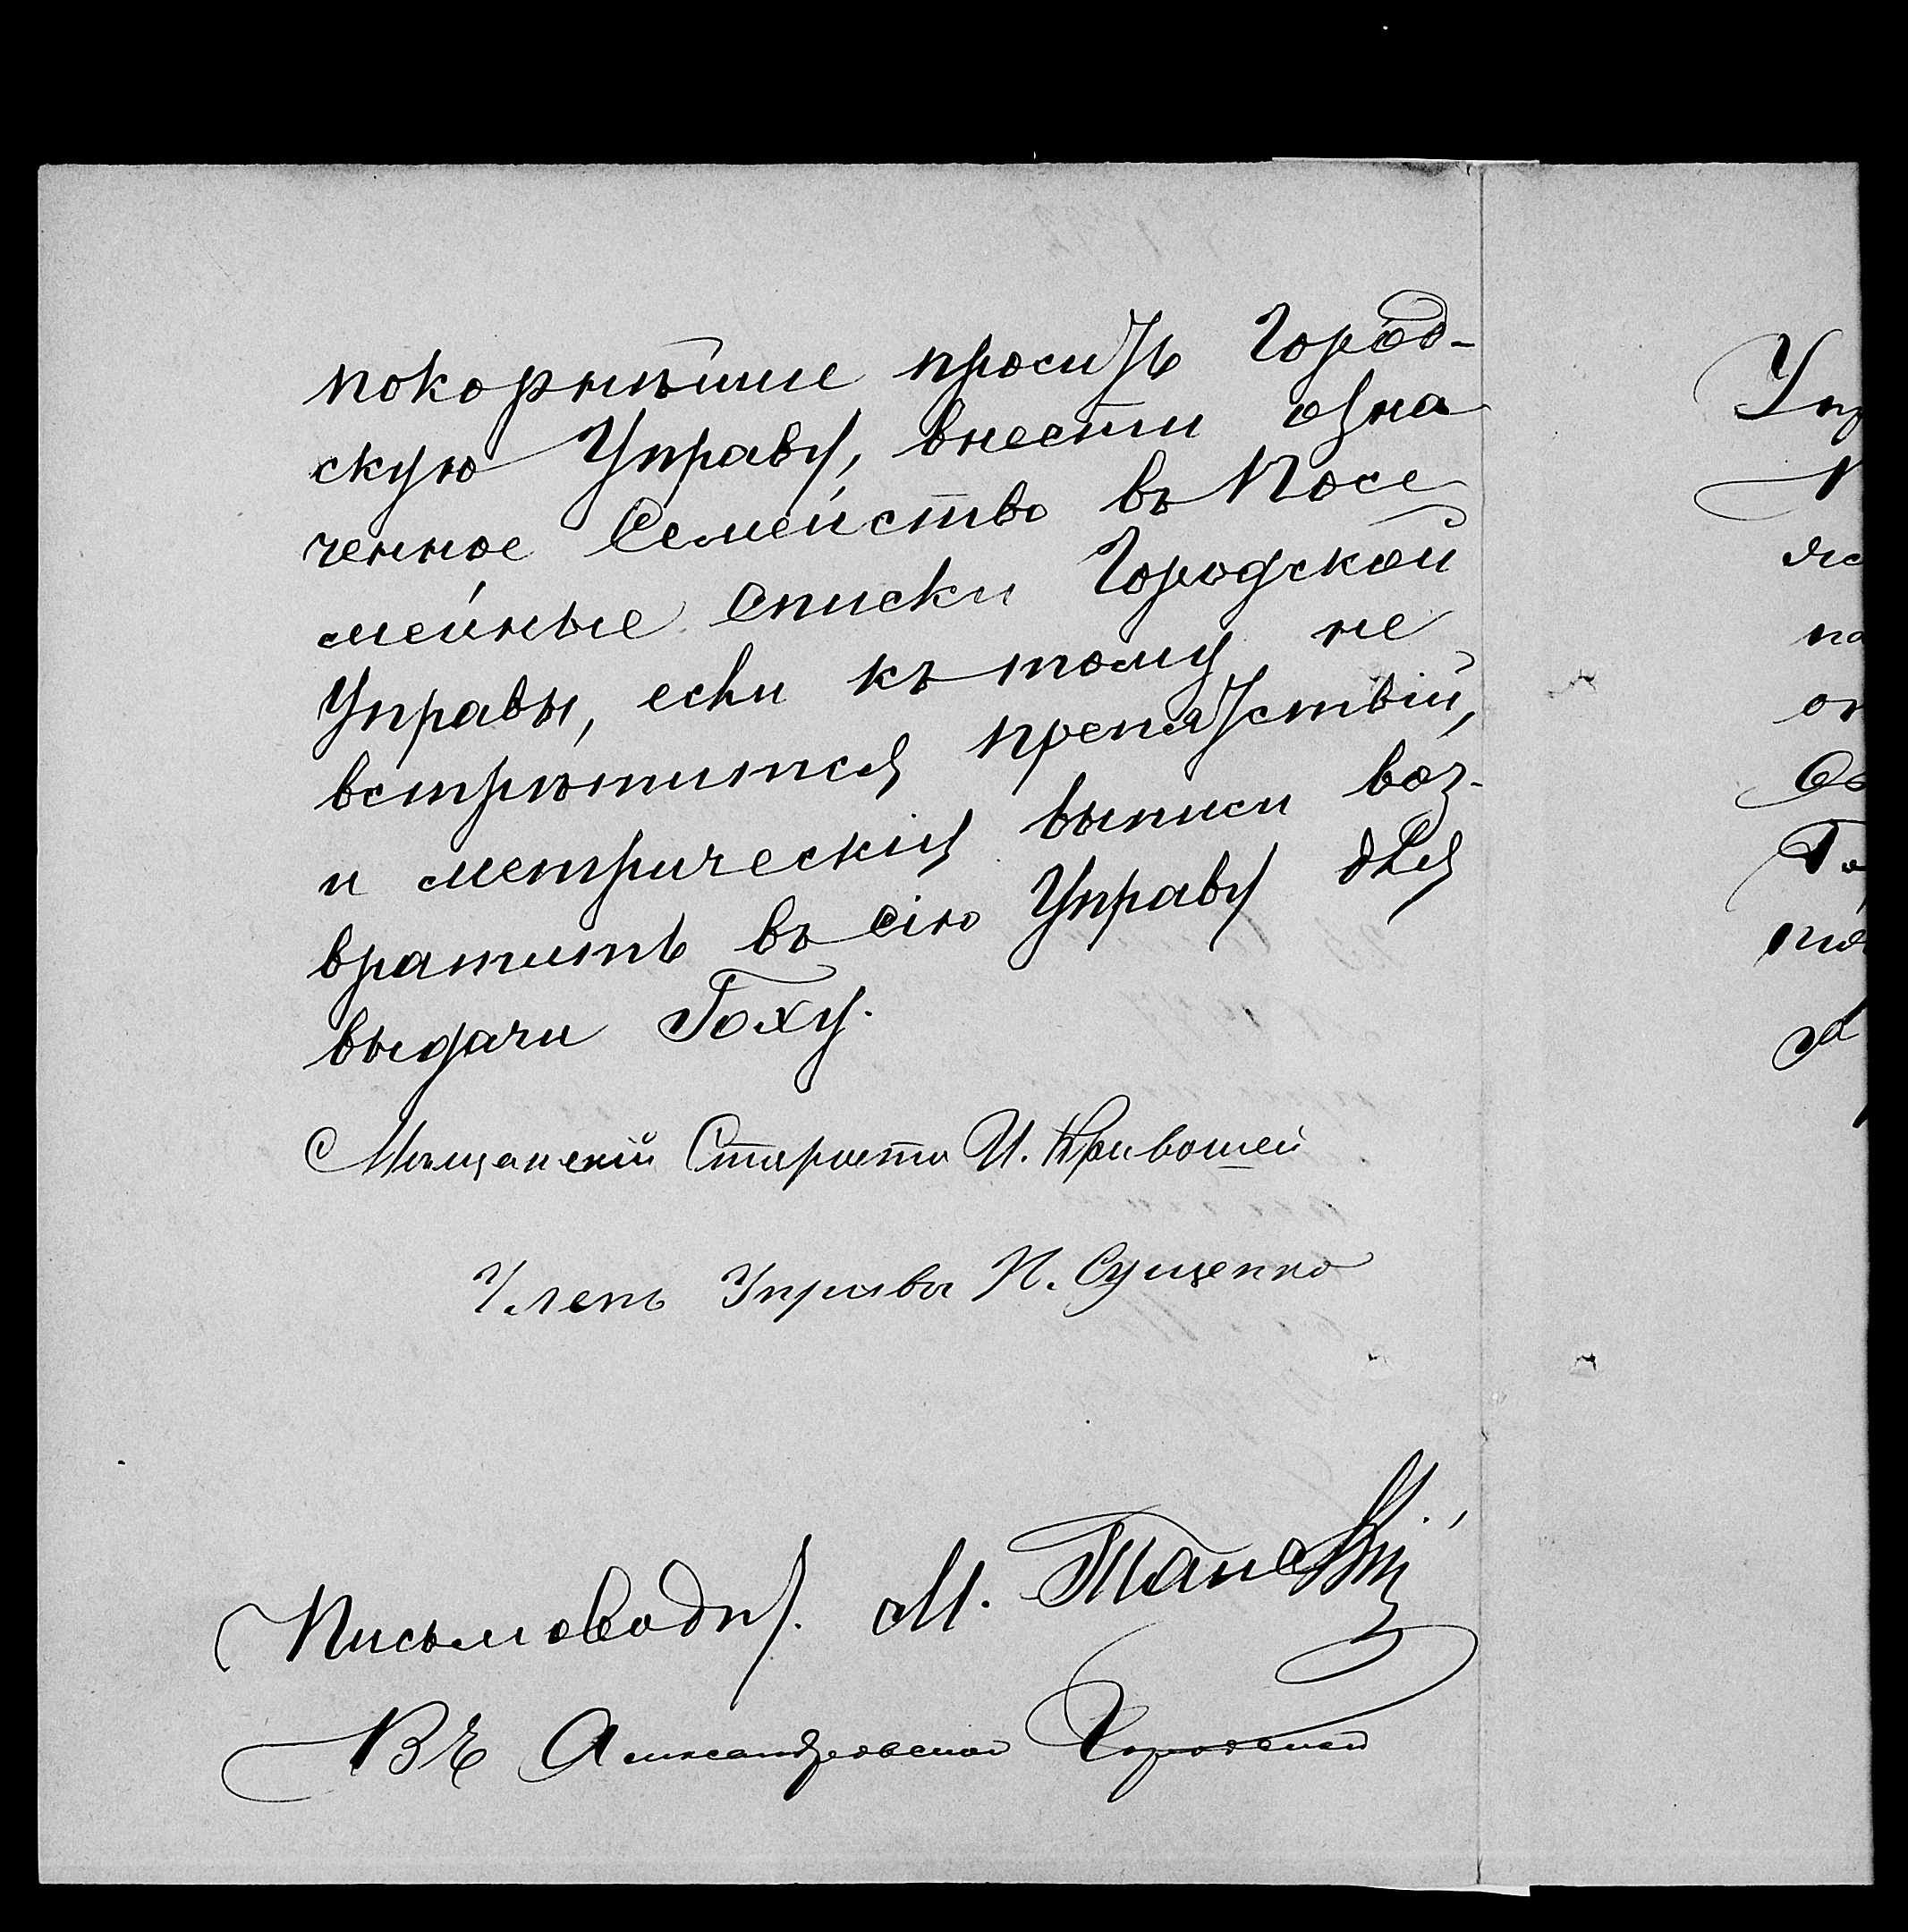 покорнѣйше просить Город-
скую Управу, внести озна
ченное Семейство въ Посе
мейные списки Городской
Управы, если къ тому не
встрѣтится препятствій,
и метрическія выписи воз-
вратить въ сію Управу для
выдачи Гоху.
Мѣщанскій Староста И. Кривошей
Членъ Управы И. Сущенко
Письмоводит. М.
Въ Александровскую Городскую
Упр